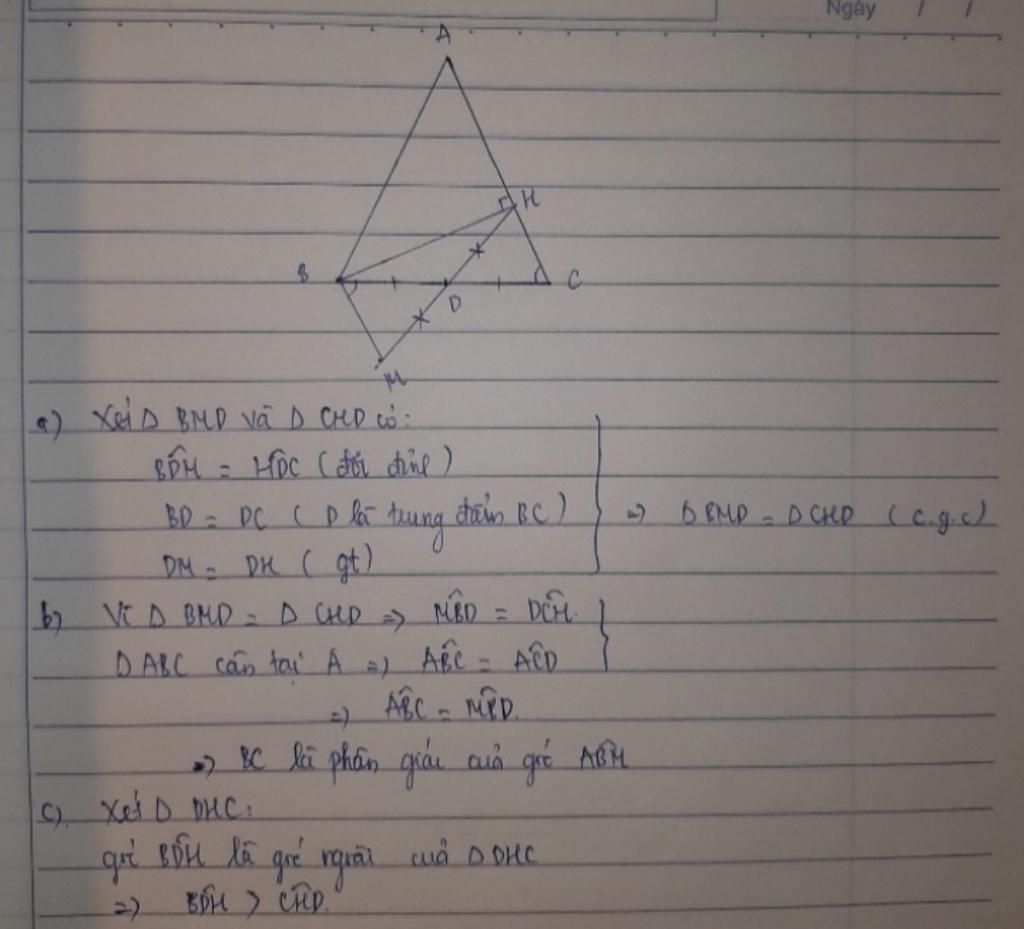 Ngày / /
A
H
B
D
C
M
a) Xét Δ BMD và Δ CHD có:
BD̂M = HD̂C (đối đỉnh)
BD = DC ( D là trung điểm BC)
DM = DH ( gt)
⇒ Δ BMD = Δ CHD ( c.g.c)
b) Vì Δ BMD = Δ CHD ⇒ MB̂D = DĈH.
Δ ABC cân tại A ⇒ AB̂C = AĈD
⇒ AB̂C = MB̂D.
⇒ BC là phân giác của góc AB̂M
c). Xét Δ DHC:
góc BD̂H là góc ngoài của Δ DHC
⇒ BD̂H > CĤD.